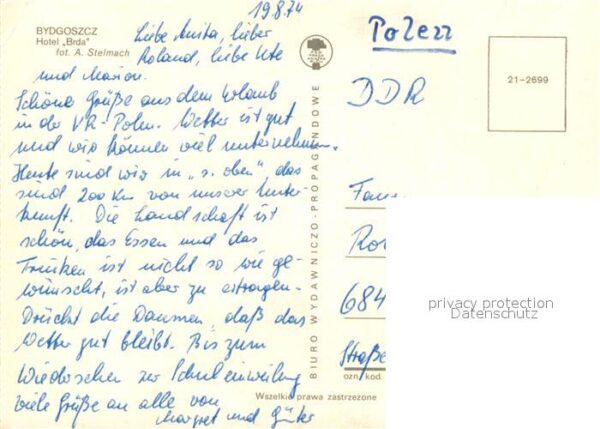 19.8.74
BYDGOSZCZ
Hotel „Brda"
fot. A. Stelmach
Liebe Anita, lieber
Roland, liebe Ute
und Marion.
Schöne Grüße aus dem Urlaub
in der VR-Polen. Wetter ist gut
und wir können viel unternehmen.
Heute sind wir in „s. oben", das
sind 200 km von unserer Unter-
kunft. Die Landschaft ist
schön, das Essen und das
Trinken ist nicht so wie ge-
wünscht, ist aber zu ertragen.
Drückt die Daumen, daß das
Wetter gut bleibt. Bis zum
Wiedersehen zur Schuleinweihung
viele Grüße an alle von
Margret und Günter
BIURO WYDAWNICZO-PROPAGANDOWE
Polen
DDR
21-2699
Fam
Ro
684
Straße
ozn. kod.
Wszelkie prawa zastrzeżone
privacy protection
Datenschutz